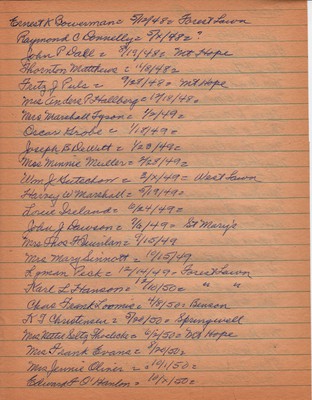 Ernest K Bowerman = 5/12/48 = Forest Lawn
Raymond C Donnelly = 8/4/48 = ?
John P Dall = 8/19/48 = Mt Hope
Thornton Matthews = 11/8/48 =
Fritz J Puls = 9/28/48 = Mt Hope
Mrs Anders P. Hallborg = 12/18/48 =
Mrs Marshall Tyson = 1/2/49 =
Oscar Grobe = 1/18/49 =
Joseph B DeWitt = 1/28/49 =
Mrs Minnie Muller = 2/28/49 =
Wm J Gutschow = 3/ /49 = West Lawn
Harvey W Marshall = /19/49 =
Ireland = /24/49 =
John J Dawson = 9/6/49 = St Mary's
Mrs Thos F Quinlan = 9/15/49
Mrs Mary Sinnott = 10/15/49
Lyman Peck = 12/14/49 = Forest Lawn
Karl L Hanson = 12/ /50 = " "
Chas Frank Loomis = 4/8/50 = Benson
K T Christensen = 5/20/50 = Springwell
Mrs = 6/2/50 = Mt Hope
Mrs Frank Evans = /50 =
Mrs Jennie Oliver = 10/1/50 =
Edward F O'Hanlon = 10/21/50 =